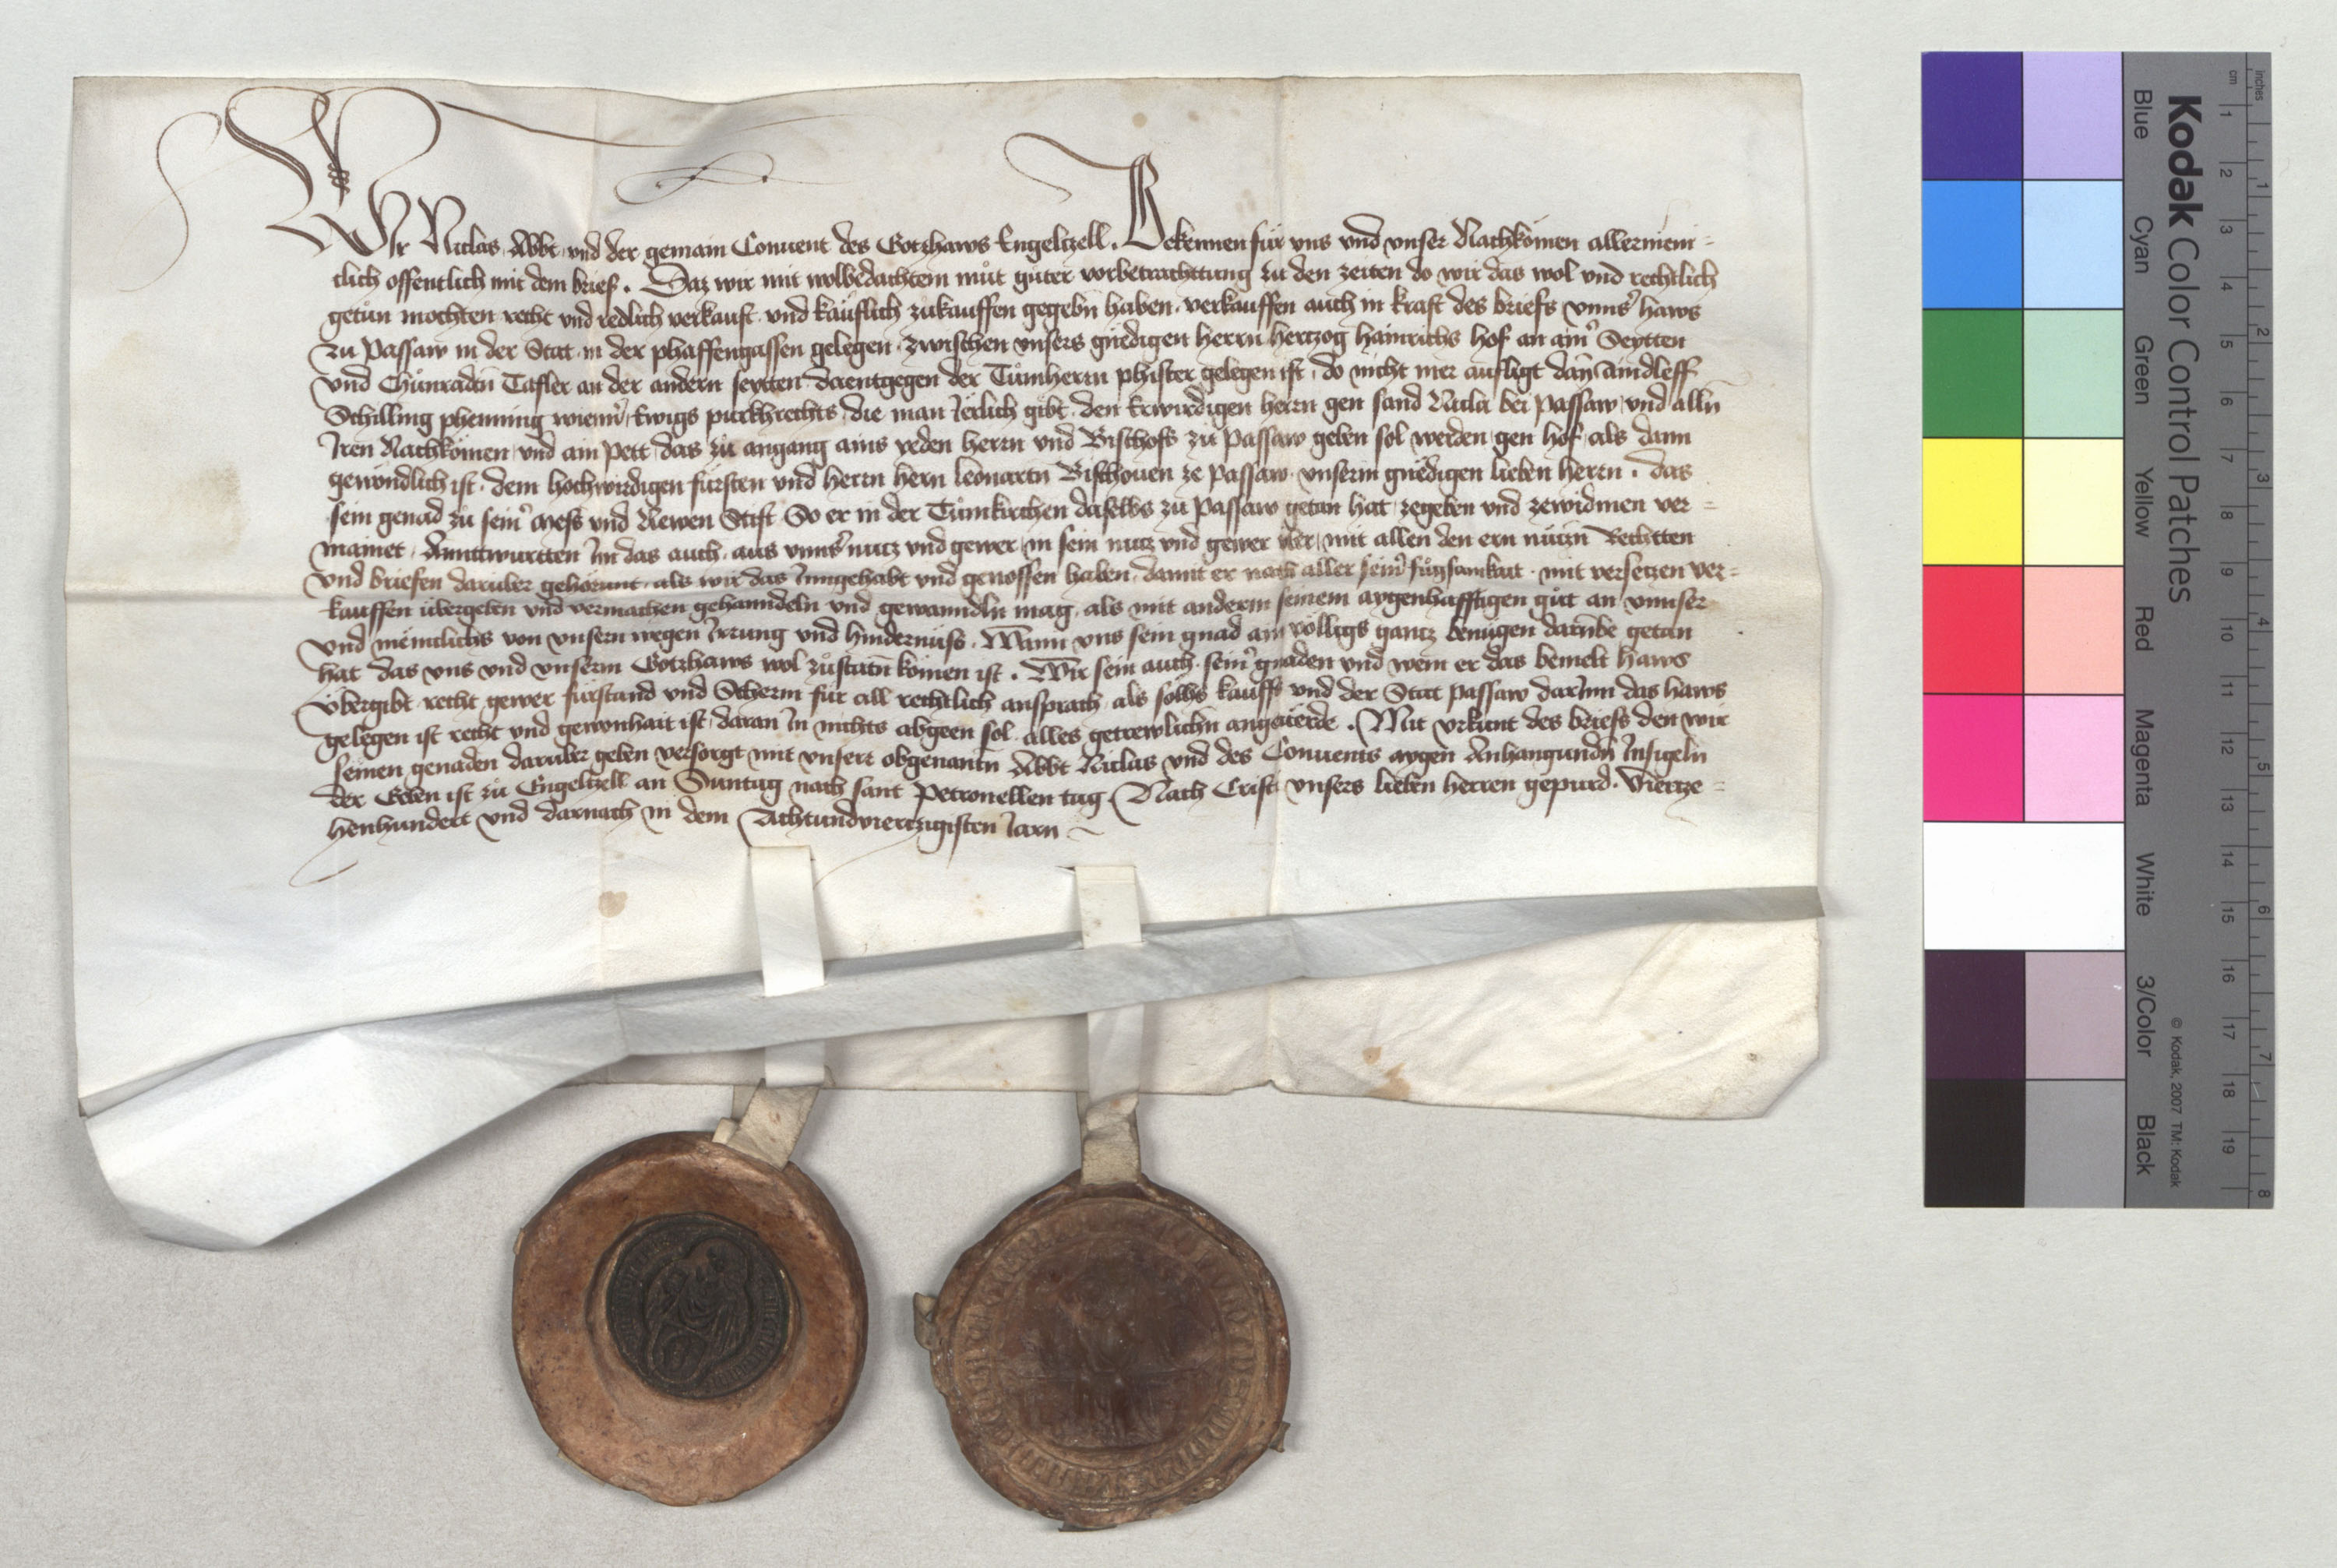 Wir Niclas Abbt und der gemain Conuent des Gotzhaws Engeltzell. Bekennen für uns und unser Nachkömen allermeni=
clich offentlich mit dem brief. Daz wir mit wolbedachtem můt gůter vorbetrachttung zu den zeiten do wir das wol und rechtlich
getůn mochten recht und redlich verkauft und käuflich zůkauffen gegebn̄ haben. verkauffen auch in kraft des briefs unns̾ haws
zu Passaw in der Stat in der phaffengassen gelegen zwischen unsers gnedigen herrn hertzog hainrichs hof an aim̾ Seytten
und Chůnradn̄ Tafler an der andern seytten daentgegen der Tůmherrn phister gelegen ist, do nicht mer aufligt dan̄ aindleff
Schilling phenning wienn̾ Ewigs purkhrechts die man Jerlich gibt den Erwirdigen herrn gen sand Nicla bei Passaw und alln̄
Jren Nachkömen und ain pett das zů angang ains yeden herrn und Bischofs zu Passaw geben sol werden gen hof als dann
gewöndlich ist. dem hochwirdigen fürsten und herrn hern leonartn̄ Bischouen ze Passaw unserm gnedigen lieben herrn. das
sein genad zů sein̾ Mess und Newen Stift So er in der Tůmkirchen daselbs zu Passaw getan hat zegeben und zewidmen ver=
mainet. Anntwurtten Jm das auch aus unns̾ nutz und gewer in sein nutz und gewer mit allen den ern nützn̄ Rechtten
und briefen daruber gehörunt als wir das Jnngehabt und genossen haben damit er nach aller sein̾ fůgsamkait mit versetzen ver=
kauffen übergeben und vermachen gehanndeln und gewanndln mag als mit anderm seinem aygenhafftigen gůt an unnser
und mëniclichs von unsern wegen Jrrung und hindernüss. Wann uns sein gnad ain völligs gantz benügen darübe getan
hat das uns und unserm Gotzhaws wol zůstatn̄ kömen ist. Wir sein auch sein̾ gnaden und wem er das bemelt haws
übergibt recht gewer fürstand und Scherm für all rechtlich ansprach als solhs kauffs und der Stat passaw darJnn das haws
gelegen ist recht und gewonhait ist daran Jn nichts abgeen sol alles getrewlichn̄ angeuerde. Mit urkunt des briefs den wir
seinen genaden daruber geben versorgt mit unsert obgenantn̄ Abbt Niclas und des Conuents aygen Anhangundn̄ Jnsigeln
der Geben ist zů Engeltzell an Suntag nach sant Petronellen tag Nach Cristi unsers lieben herren gepurd. Viertze=
henhundert und darnach in dem Achtundviertzigisten Jarn
Kodak Color Control Patches
Blue Cyan Green Yellow Red Magenta White 3/Color Black
© Kodak, 2007 TM: Kodak
cm 1 2 4 5 6 7 8 9 10 11 12 13 14 15 16 17 18 19
inches 1 2 3 4 5 6 7 8